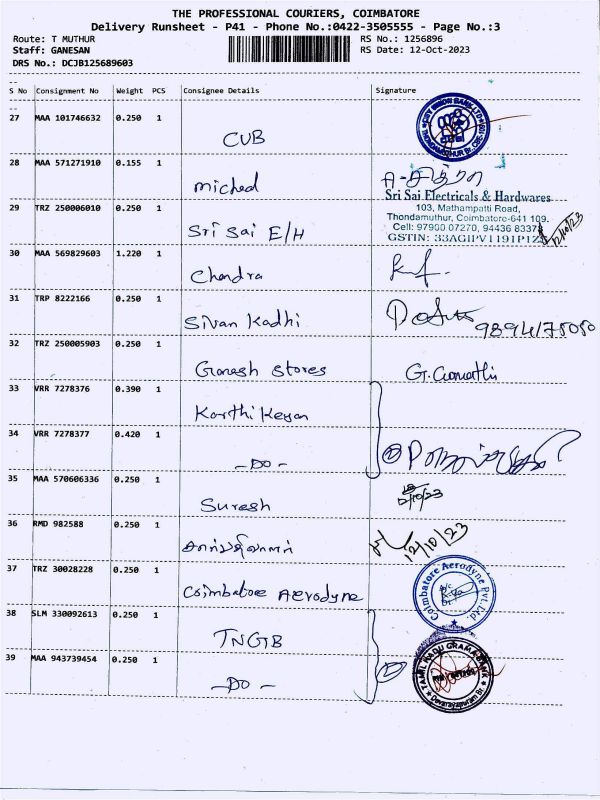 THE PROFESSIONAL COURIERS, COIMBATORE
Delivery Runsheet - P41 - Phone No.:0422-3505555 - Page No.:3
Route: T MUTHUR
RS No.: 1256896
Staff: GANESAN
RS Date: 12-Oct-2023
DRS No.: DCJB125689603
S No Consignment No Weight PCS Consignee Details Signature
27 MAA 101746632 0.250 1 CUB
CITY UNION BANK LTD
28 MAA 571271910 0.155 1 Miched
Sri Sai Electricals & Hardwares
103, Mathampatti Road,
Thondamuthur, Coimbatore-641 109.
Cell: 97900 07270, 94436 8337
GSTIN: 33AGIPV1191P1Z
12/10/23
29 TRZ 250006010 0.250 1 Sri Sai E/H
30 MAA 569829603 1.220 1 Chandra
31 TRP 8222166 0.250 1 Sivan Kadhi
32 TRZ 250005903 0.250 1 Ganesh Stores G. Gomathi
33 VRR 7278376 0.390 1 Karthi Keyan
34 VRR 7278377 0.420 1 - DO -
35 MAA 570606336 0.250 1 Suresh
12/10/23
36 RMD 982588 0.250 1
12/10/23
37 TRZ 30028228 0.250 1 Coimbatore Aerodyne
Coimbatore Aerodyne Pvt. Ltd.
38 SLM 330092613 0.250 1 TNGB
39 MAA 943739454 0.250 1 - DO -
TAMIL NADU GRAMA BANK
Devarayapuram Br.